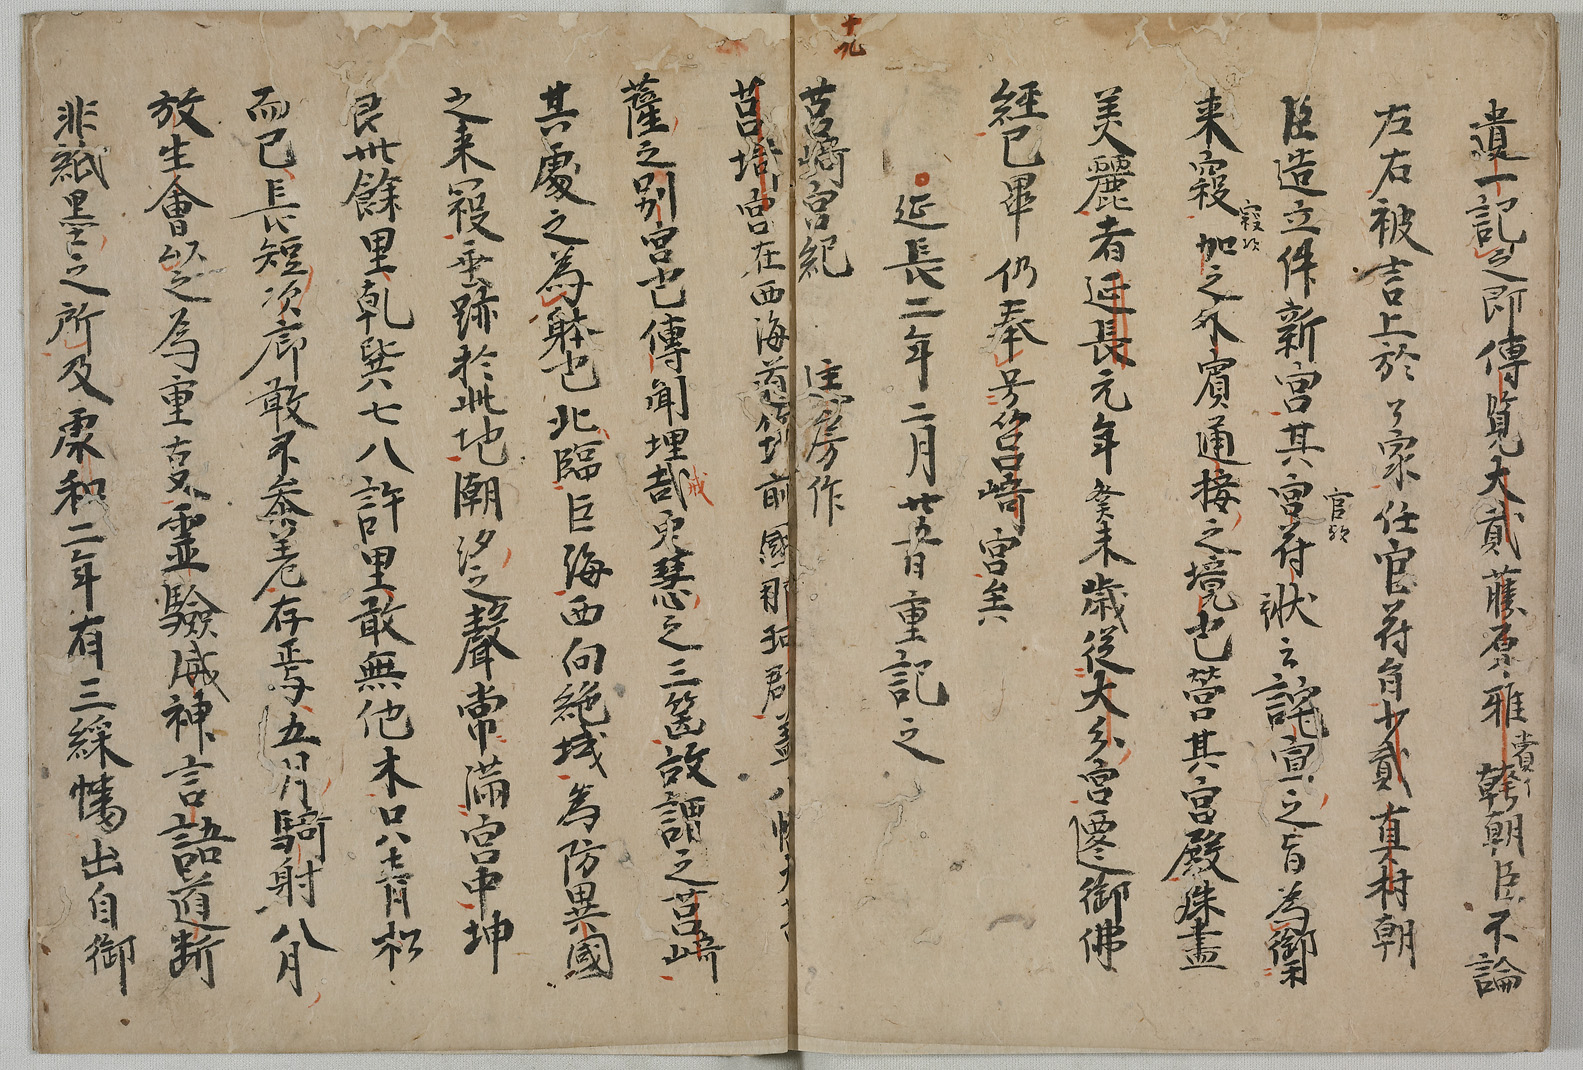 十九
遺一記之即傳覧大貳藤原雅幹朝臣不論
左右被言上於公家任官符旨少貳真材朝
臣造立件新宮其宮符状云詫宣之旨為禦
官欤
来寇加之外賓通接之境也営其宮殿殊盡
寇欤
美麗者延長元年癸未歳従大分宮遷御佛
経已畢仍奉号筥崎宮矣
延長二年二月廿五日重記之
筥崎宮紀 匡房作
筥埼宮在西海道筑前國那珂郡蓋八幡大菩
薩之別宮也傳聞埋哉定慧之三篋故謂之筥崎
戒
其處之為躰也北臨巨海西向絶域為防異國
之来寇垂跡於此地潮汐之聲常満宮中坤
艮卅餘里乾巽七八許里敢無他木只青松
而已長短次序敢不参差存焉五月騎射八月
放生會以之為重事霊験威神言語道断
非紙墨之所及康和二年有三綵幡出自御